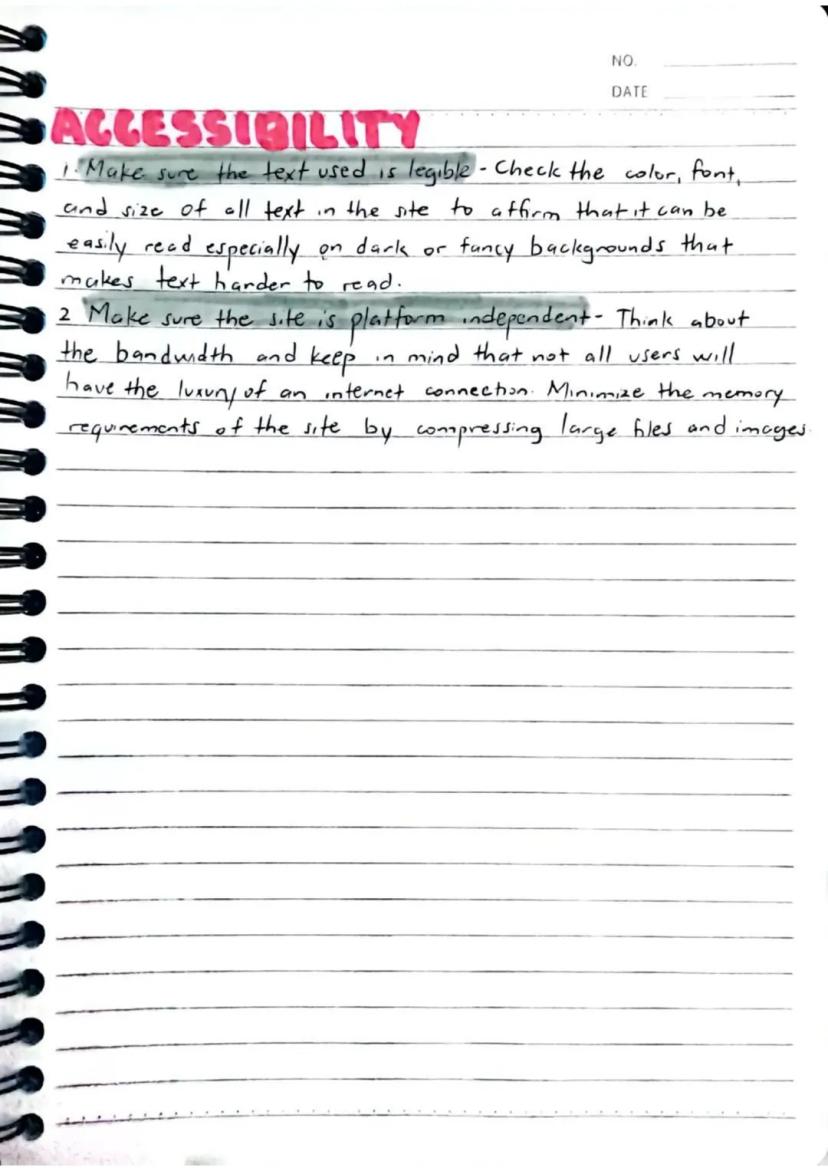 NO.
DATE
ACCESSIBILITY
1. Make sure the text used is legible - Check the color, font,
and size of all text in the site to affirm that it can be
easily read especially on dark or fancy backgrounds that
makes text harder to read.
2 Make sure the site is platform independent - Think about
the bandwidth and keep in mind that not all users will
have the luxury of an internet connection. Minimize the memory
requirements of the site by compressing large files and images.